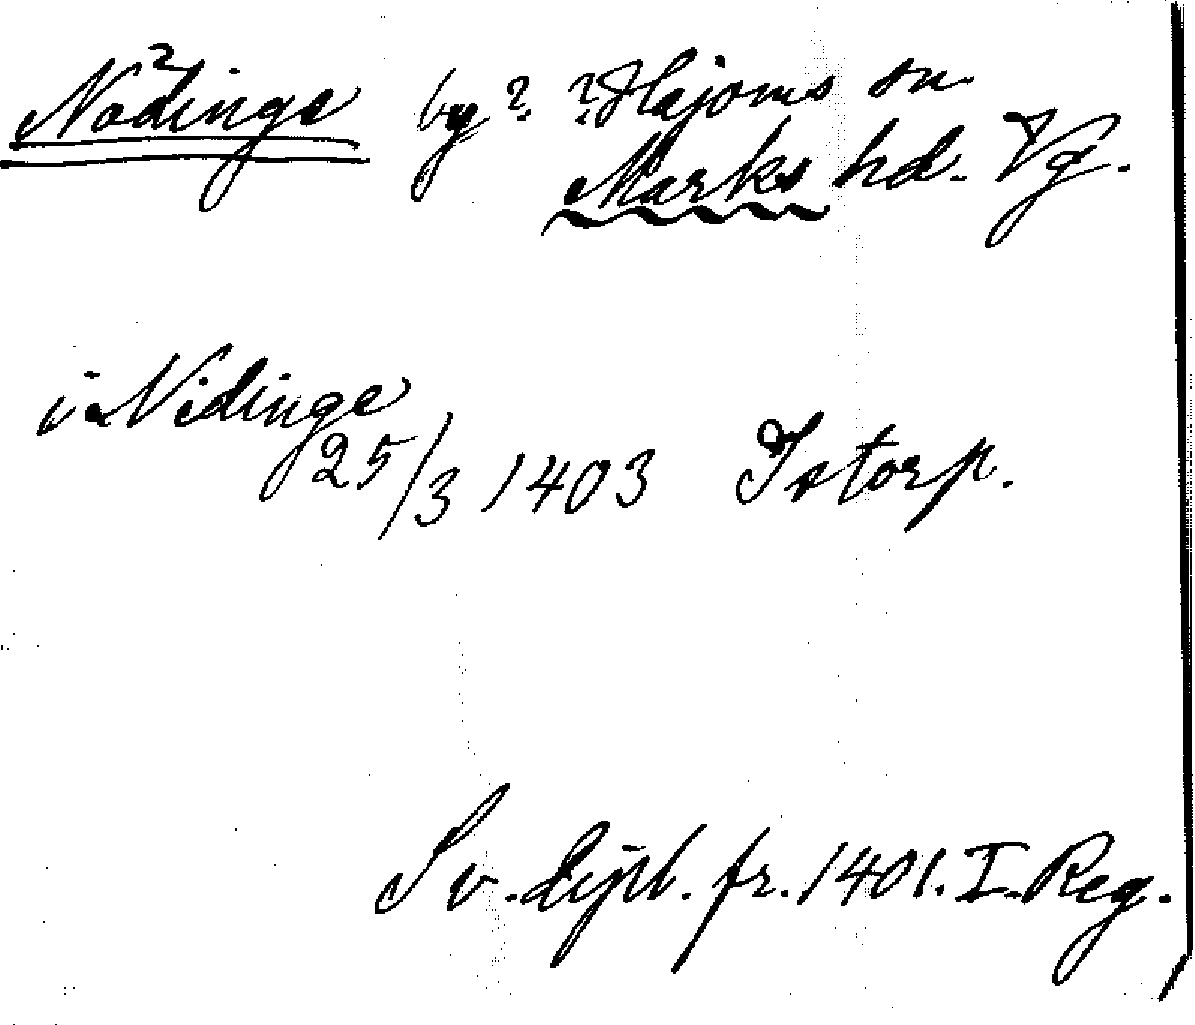 Nödinge by? ?Hajoms sn
Marks hd. Vg.
i Nidinge
25/3 1403 Istorp.
Sv. dipl. fr. 1401. I. Reg.